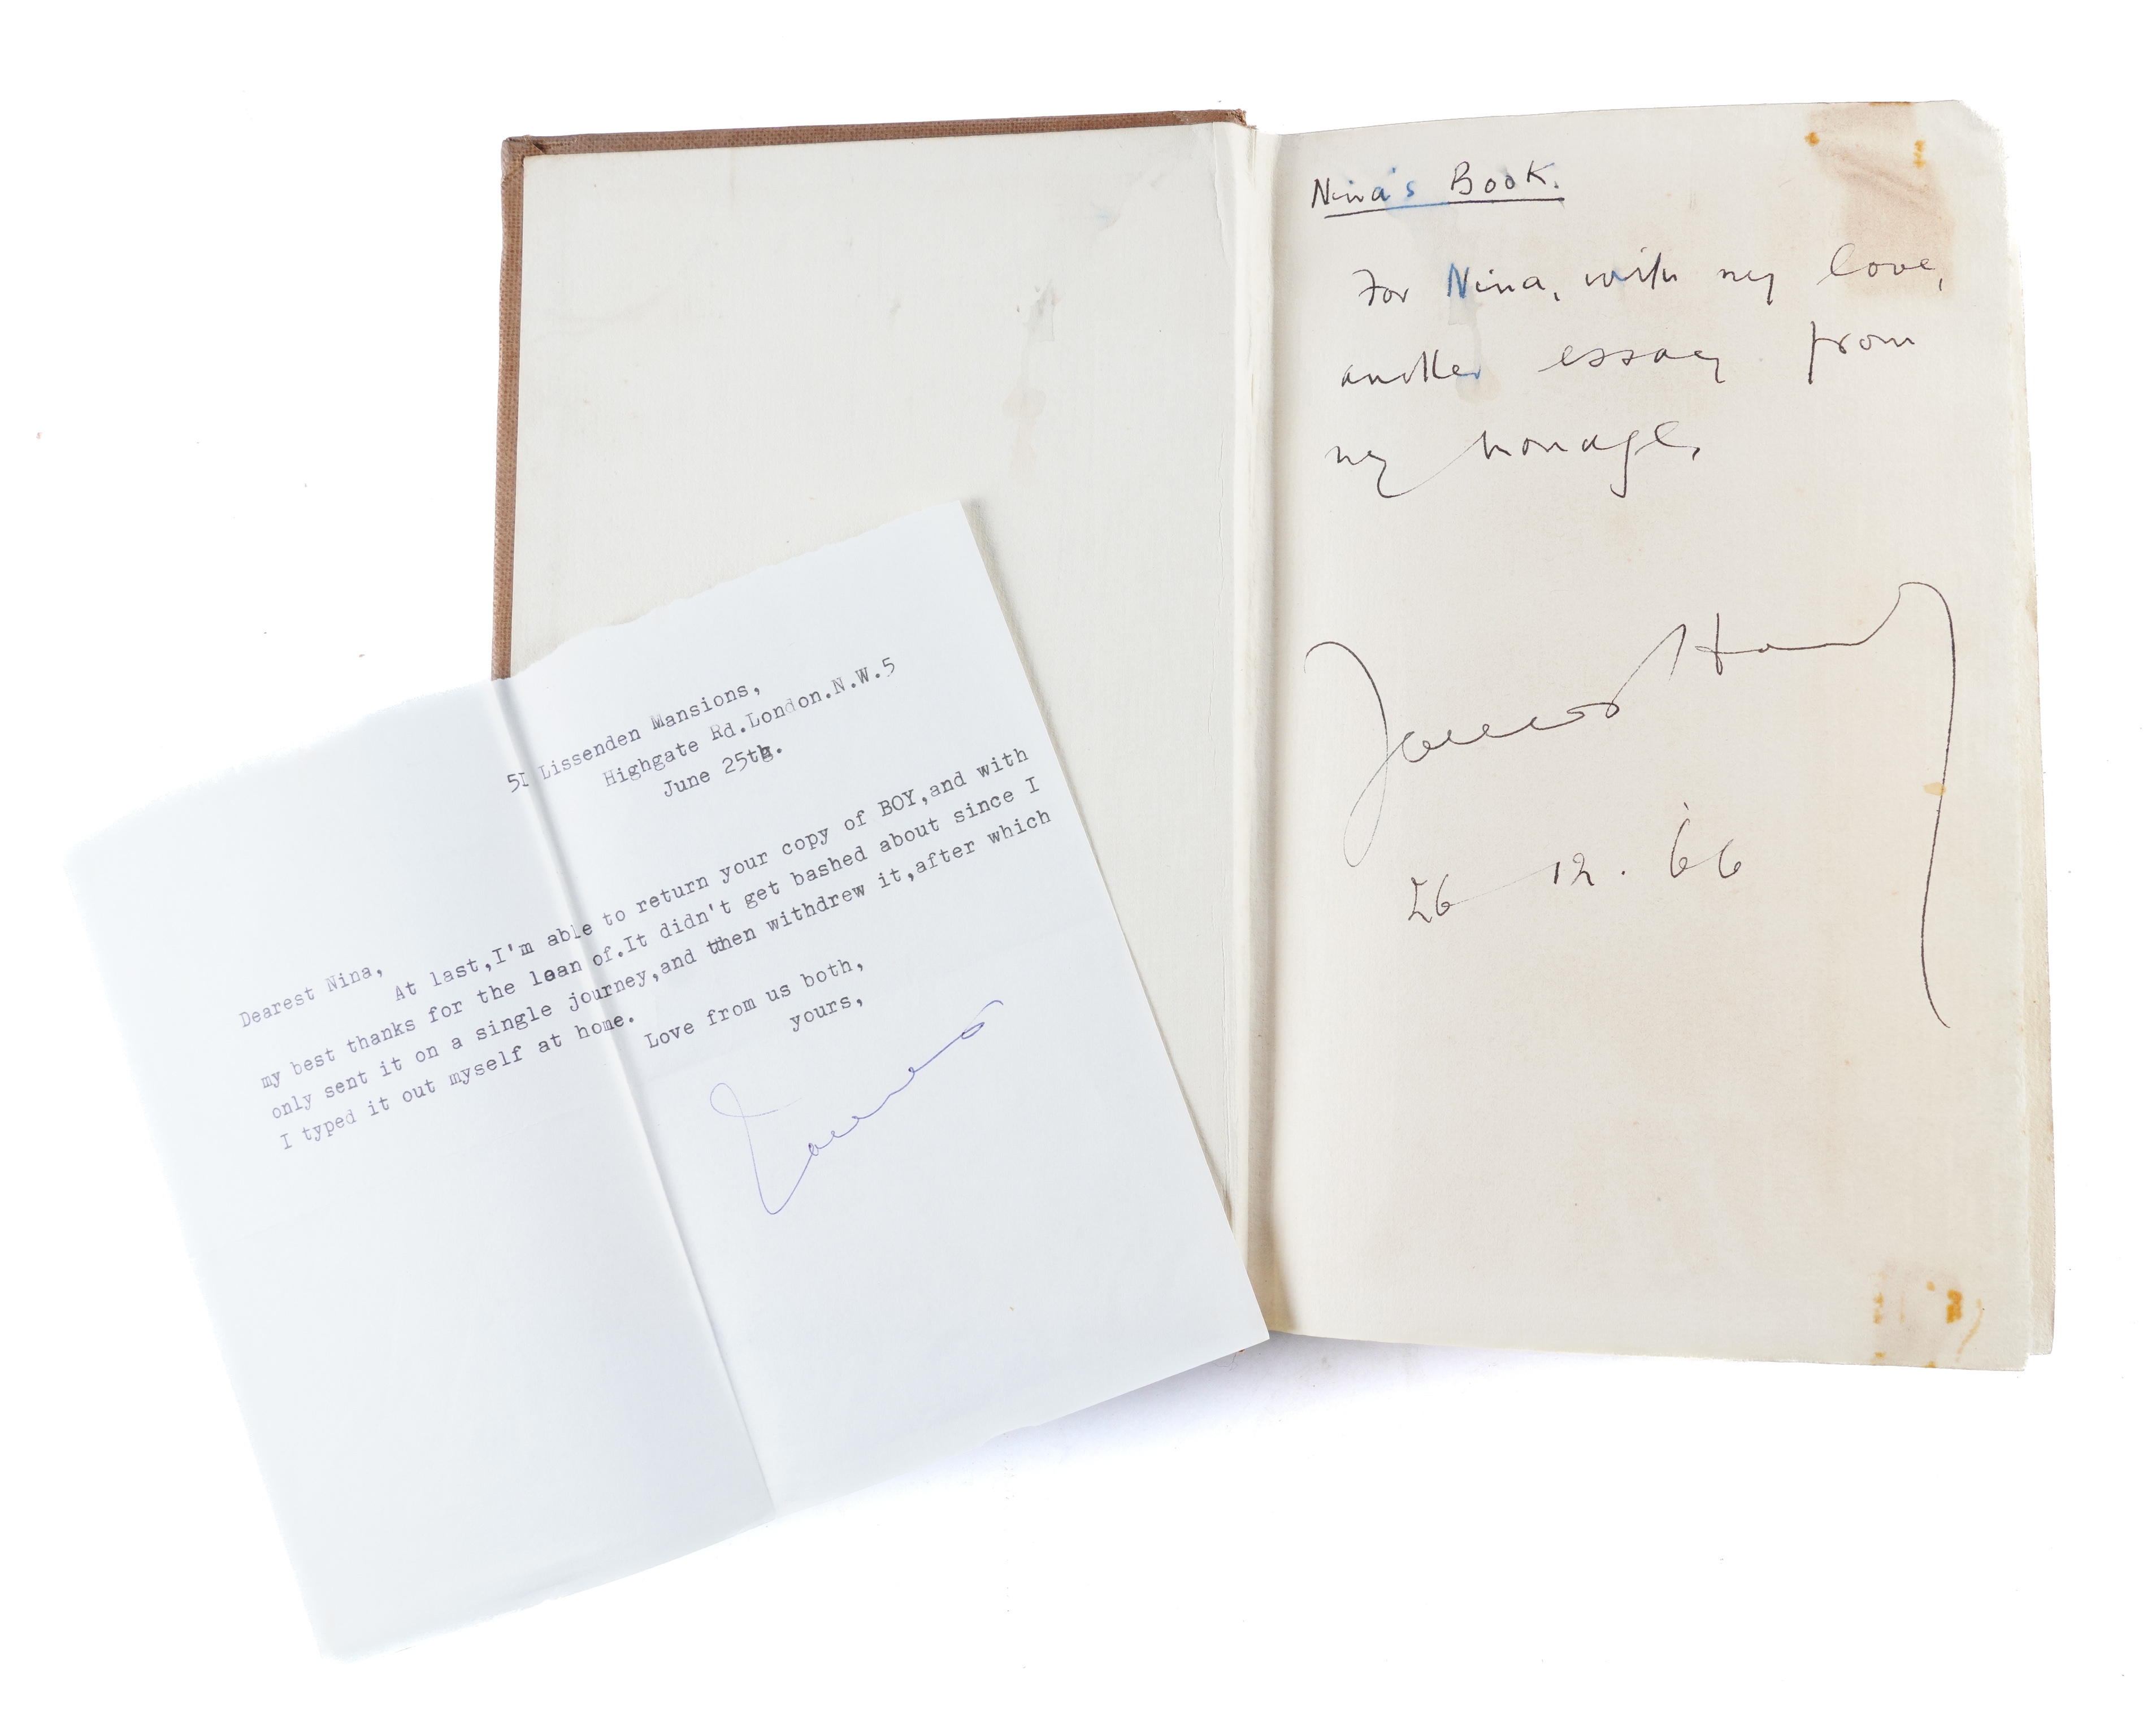 5I Lissenden Mansions,
Highgate Rd.London.N.W.5
June 25th.
Dearest Nina,
At last,I'm able to return your copy of BOY,and with
my best thanks for the loan of.It didn't get bashed about since I
only sent it on a single journey,and then withdrew it,after which
I typed it out myself at home.
Love from us both,
yours,
James
Nina's Book.
For Nina, with my love,
another essay from
my nonage,
James Hanley
26 12. 66